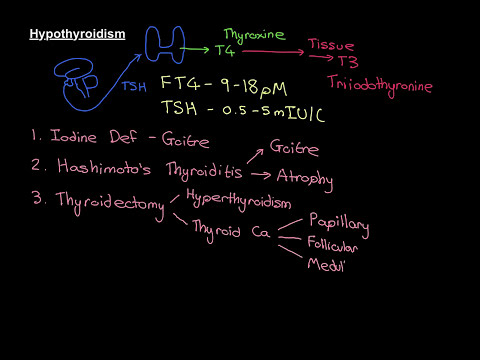 Hypothyroidism
Thyroxine
T4
Tissue
T3
Triiodothyronine
TSH
FT4 - 9-18pM
TSH - 0.5-5mIU/L
1. Iodine Def - Goitre
2. Hashimoto's Thyroiditis
Goitre
Atrophy
3. Thyroidectomy
Hyperthyroidism
Thyroid Ca
Papillary
Follicular
Medul